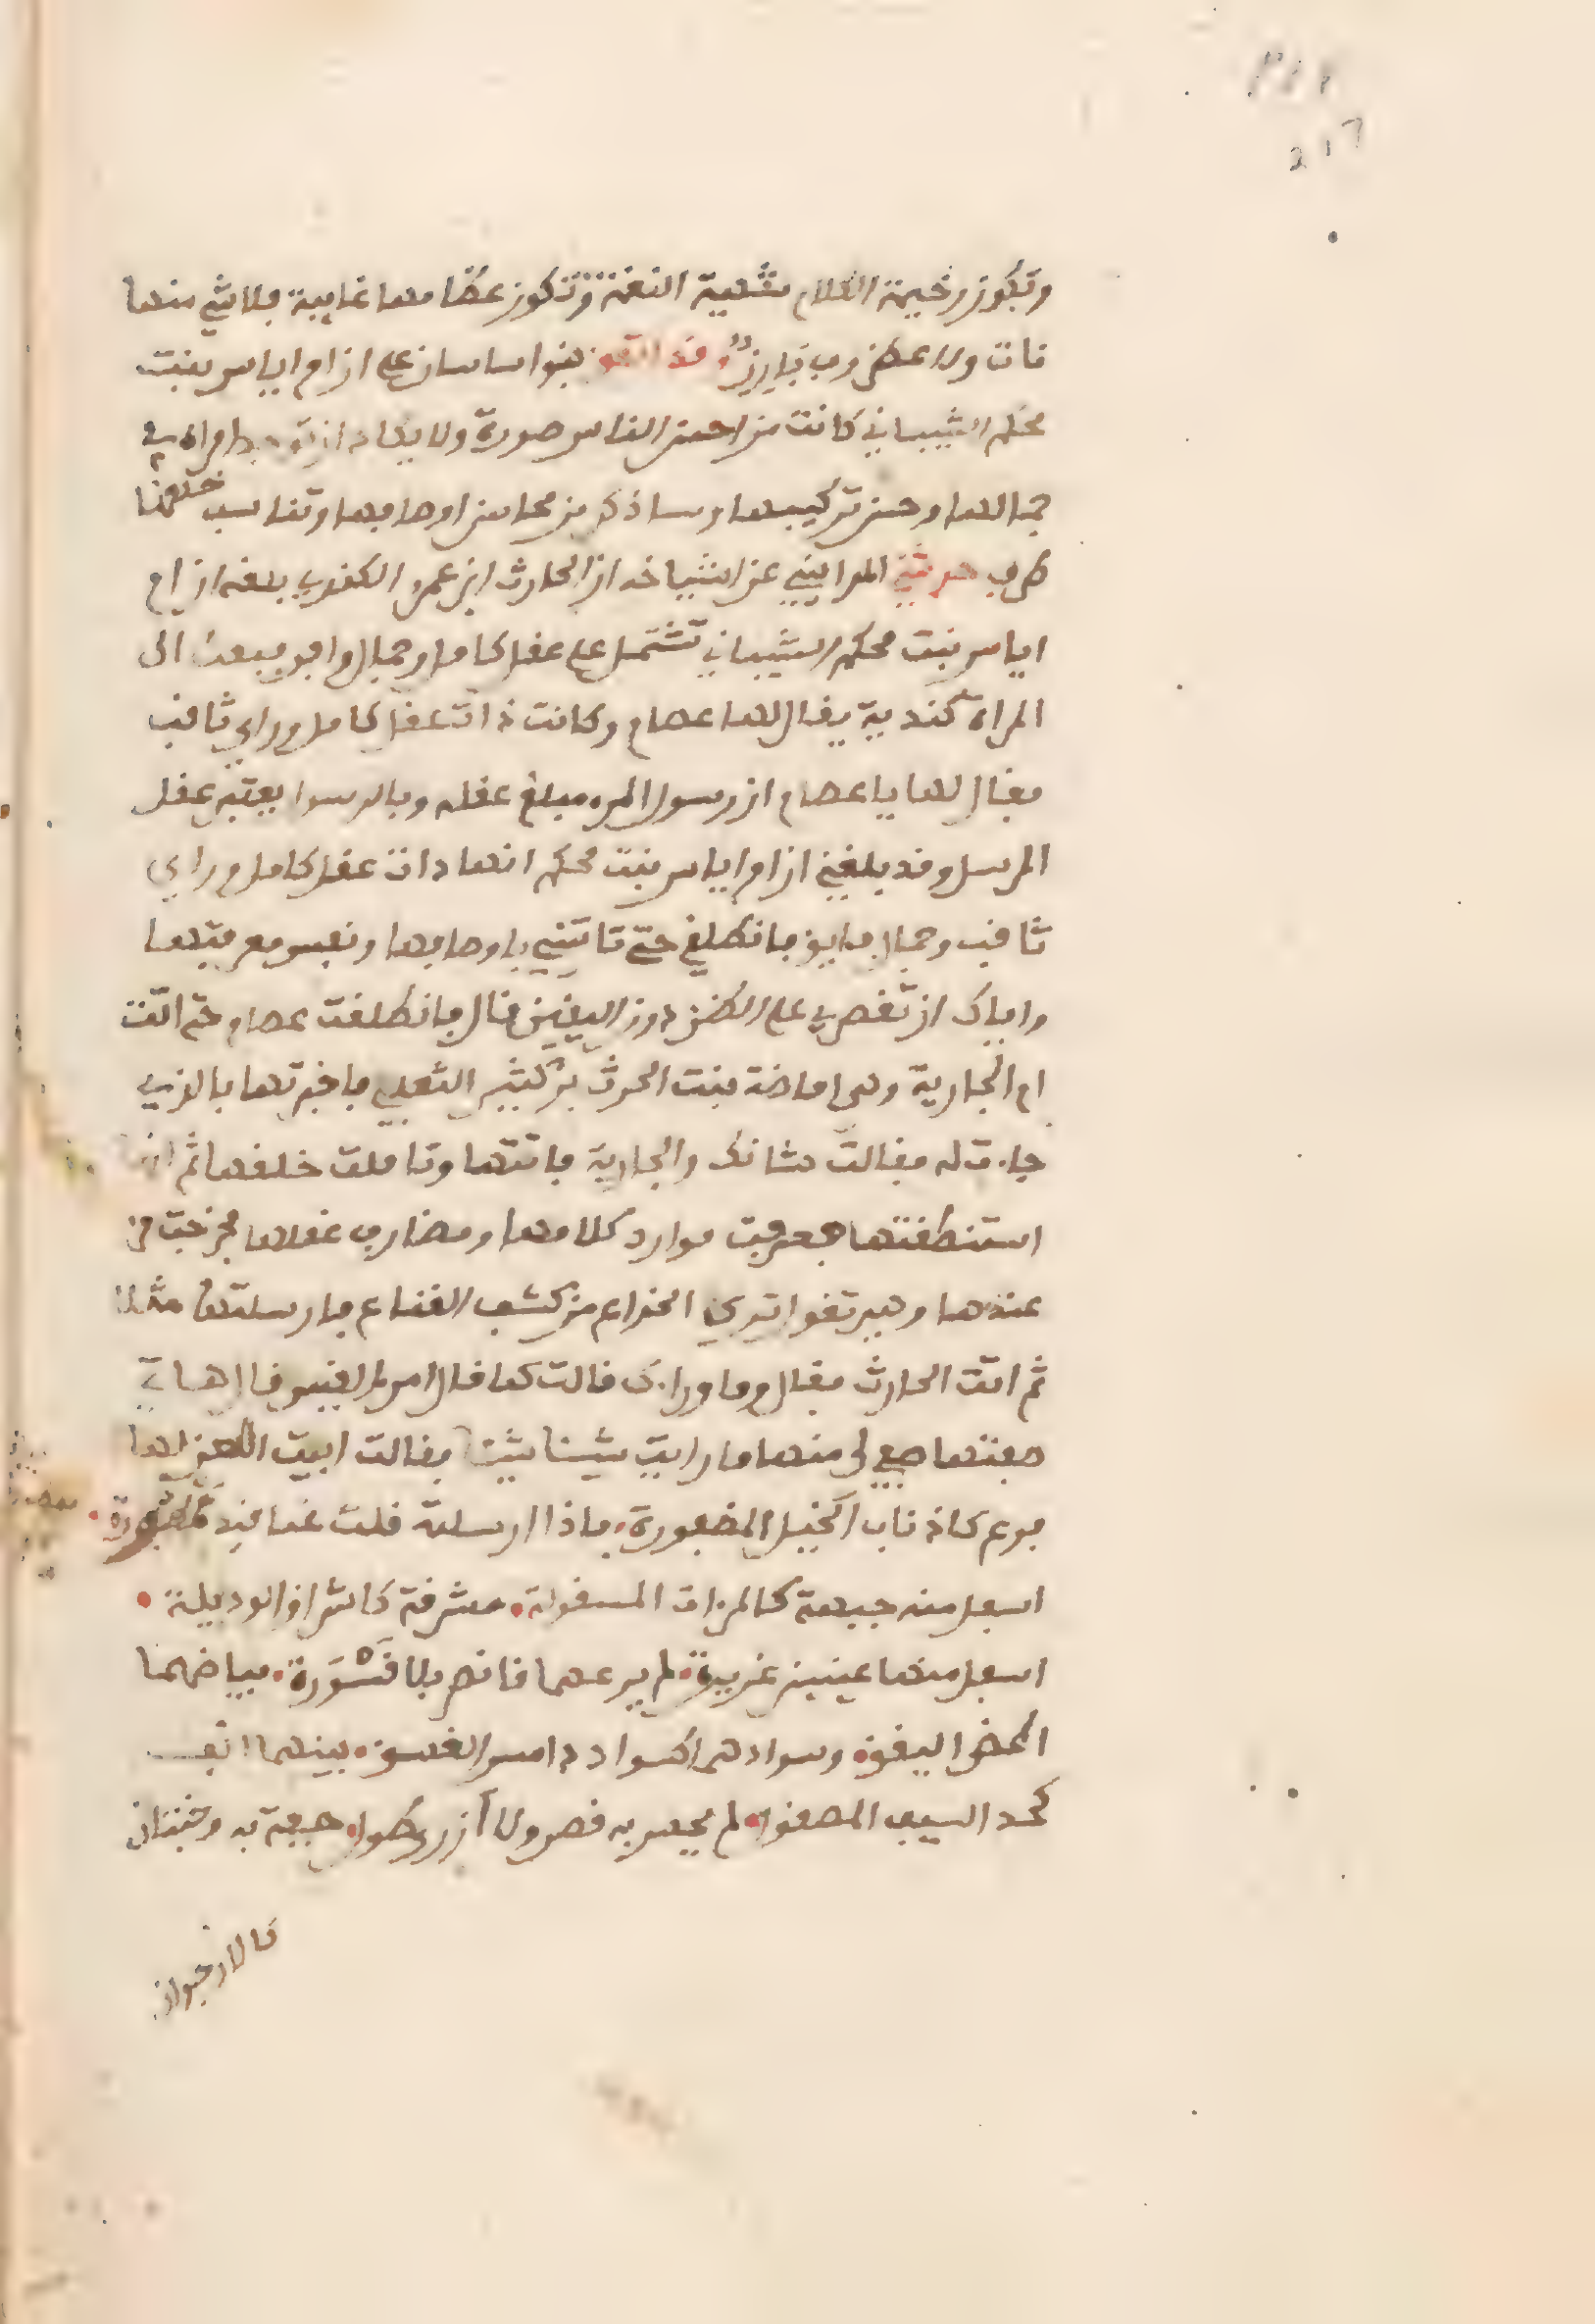 217
وتكون رخيمة الكلام شهية النغمة وتكون عظامها غايبة فلا شيء منها
نات ولا عظروف بارز وقد اتفق بنوا ساسان على ان ام اياس بنت
محلم الشيباني كانت من احسن الناس صورة ولا يكاد ان توجد امراة في
جمالها وحسن تركيبها وساذكر من محاسن اوصافها وتناسب خلقها
طرف حدثني المدايني عن اشياخه ان الحارث ابن عمرو الكندي بلغه ان ام
اياس بنت محكم الشيباني تشتمل على عقل كامل وجمال وافر فبعث الى
امراة كندية يقال لها عصام وكانت ذات عقل كامل وراي ثاقب
فقال لها يا عصام ان رسول المرء مبلغ عقله وبالرسول يعتبر عقل
المرسل وقد بلغني ان ام اياس بنت محكم انها ذات عقل كامل وراي
ثاقب وجمال فايق فانطلقي حتى تاتيني باوصافها ونفس معرفتها
واياك ان تقصري على الظن دون اليقين قال فانطلقت عصام حتى اتت
ام الجارية وهي امامة بنت الحرث بن كثير الثعلبي فاخبرتها بالذي
جاءت له فقالت شانك والجارية فاتتها وتاملت خلقها ثم انها
استنطقتها فعرفت موارد كلامها ومضارب عقلها فخرجت من
عندها وهي تقول ترك الخداع من كشف القناع فارسلتها مثلا
ثم اتت الحارث فقال وما وراءك قالت كما قال امرء القيس قال هات
صفتها صفي لي منها ما رايت شيئا شيئا فقالت ابيت اللعن لها
فرع كاذناب الخيل المضفورة فاذا ارسلته قلت عناقيد
اسفل منه جبهة كالمرءات المسقولة مشرقة كاشراق الوديلة
اسفل منها عينين غزيرة لم يرعهما قانص بلا قسورة بياضهما
كمحض اليقق وسوادهما كسواد دامس الغسق بينهما انف
كحد السيف المصقول لم يعبر به قصر ولا ازرى طول حفت به وجنتان
كالارجوان